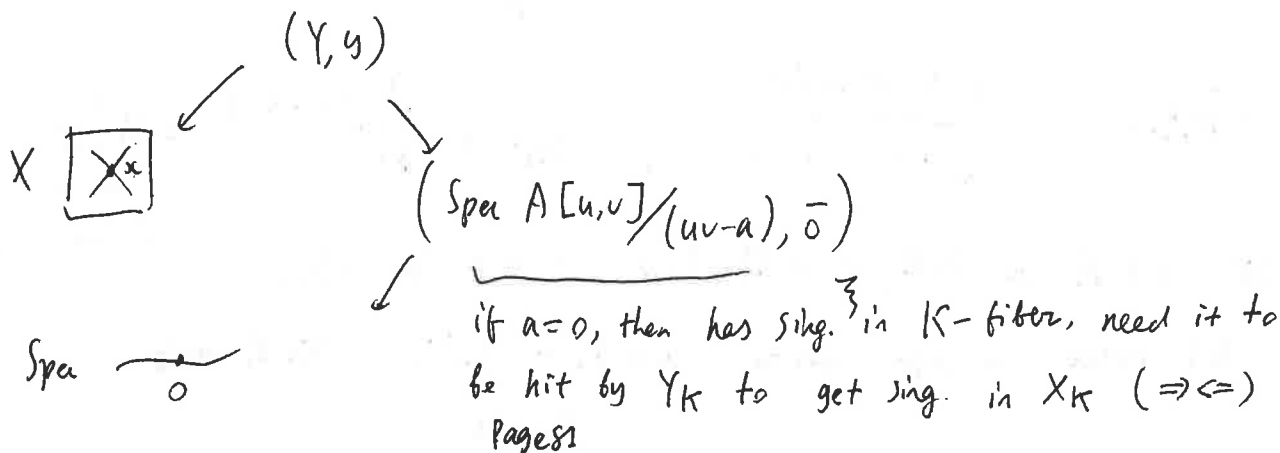 (Y, y)
X x
(Spec A[u,v]/(uv-a), 0̄)
if a=0, then has sing. ξ in K-fiber, need it to
Spec 0
be hit by Y_K to get sing. in X_K (⇒⇐)
Page81